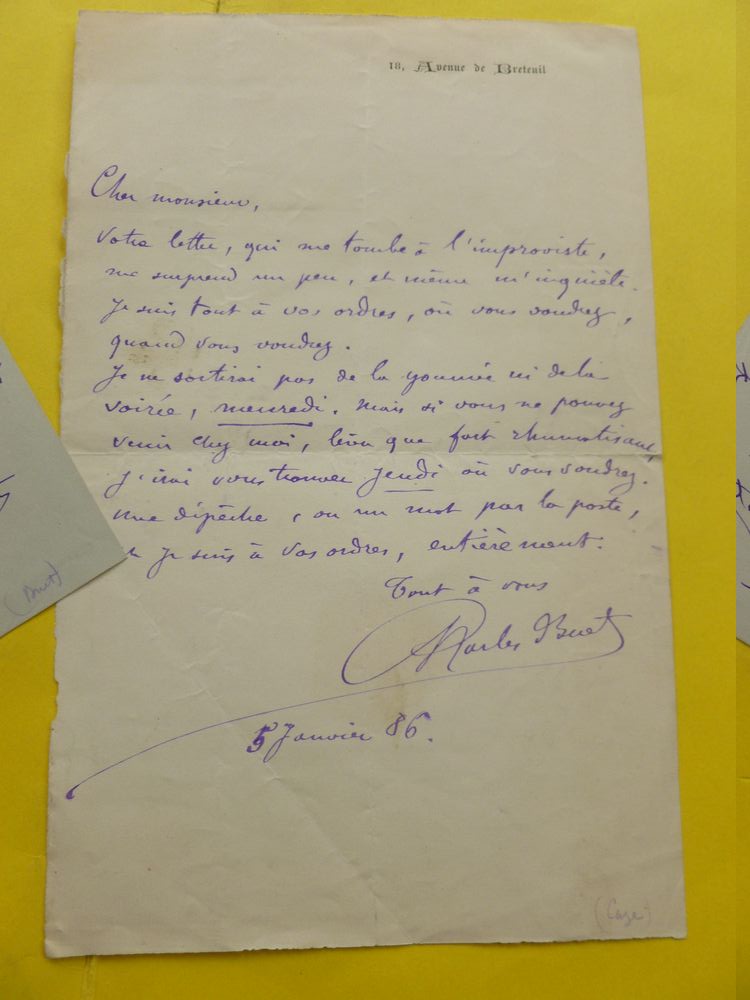 18, Avenue de Breteuil
Cher monsieur,
Votre lettre, qui me tombe à l'improviste,
me surprend un peu, et même m'inquiète.
Je suis tout à vos ordres, où vous voudrez,
quand vous voudrez.
Je ne sortirai pas de la journée ni de la
soirée, mercredi. Mais si vous ne pouvez
venir chez moi, bien que fort rhumatisant,
j'irai vous trouver jeudi où vous voudrez.
Une dépêche, ou un mot par la poste,
je suis à vos ordres, entièrement.
Tout à vous
Charles Buet
5 Janvier 86.
(Buet)
(Caze)